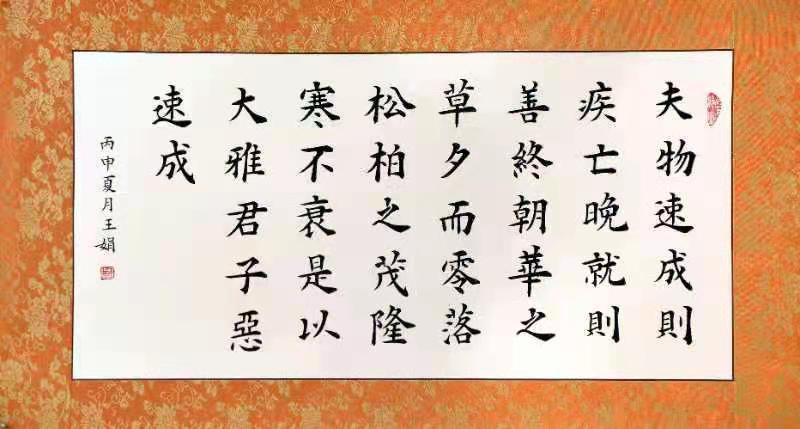 夫物速成則
疾亡晚就則
善終朝華之
草夕而零落
松柏之茂隆
寒不衰是以
大雅君子惡
速成
丙申夏月王娟